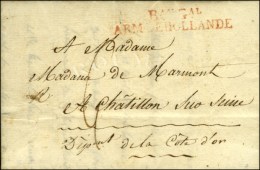 ARM HOLLANDE
A Madame
Madame de Marmont
A Châtillon Sur Seine
Départ de la Côte d'or